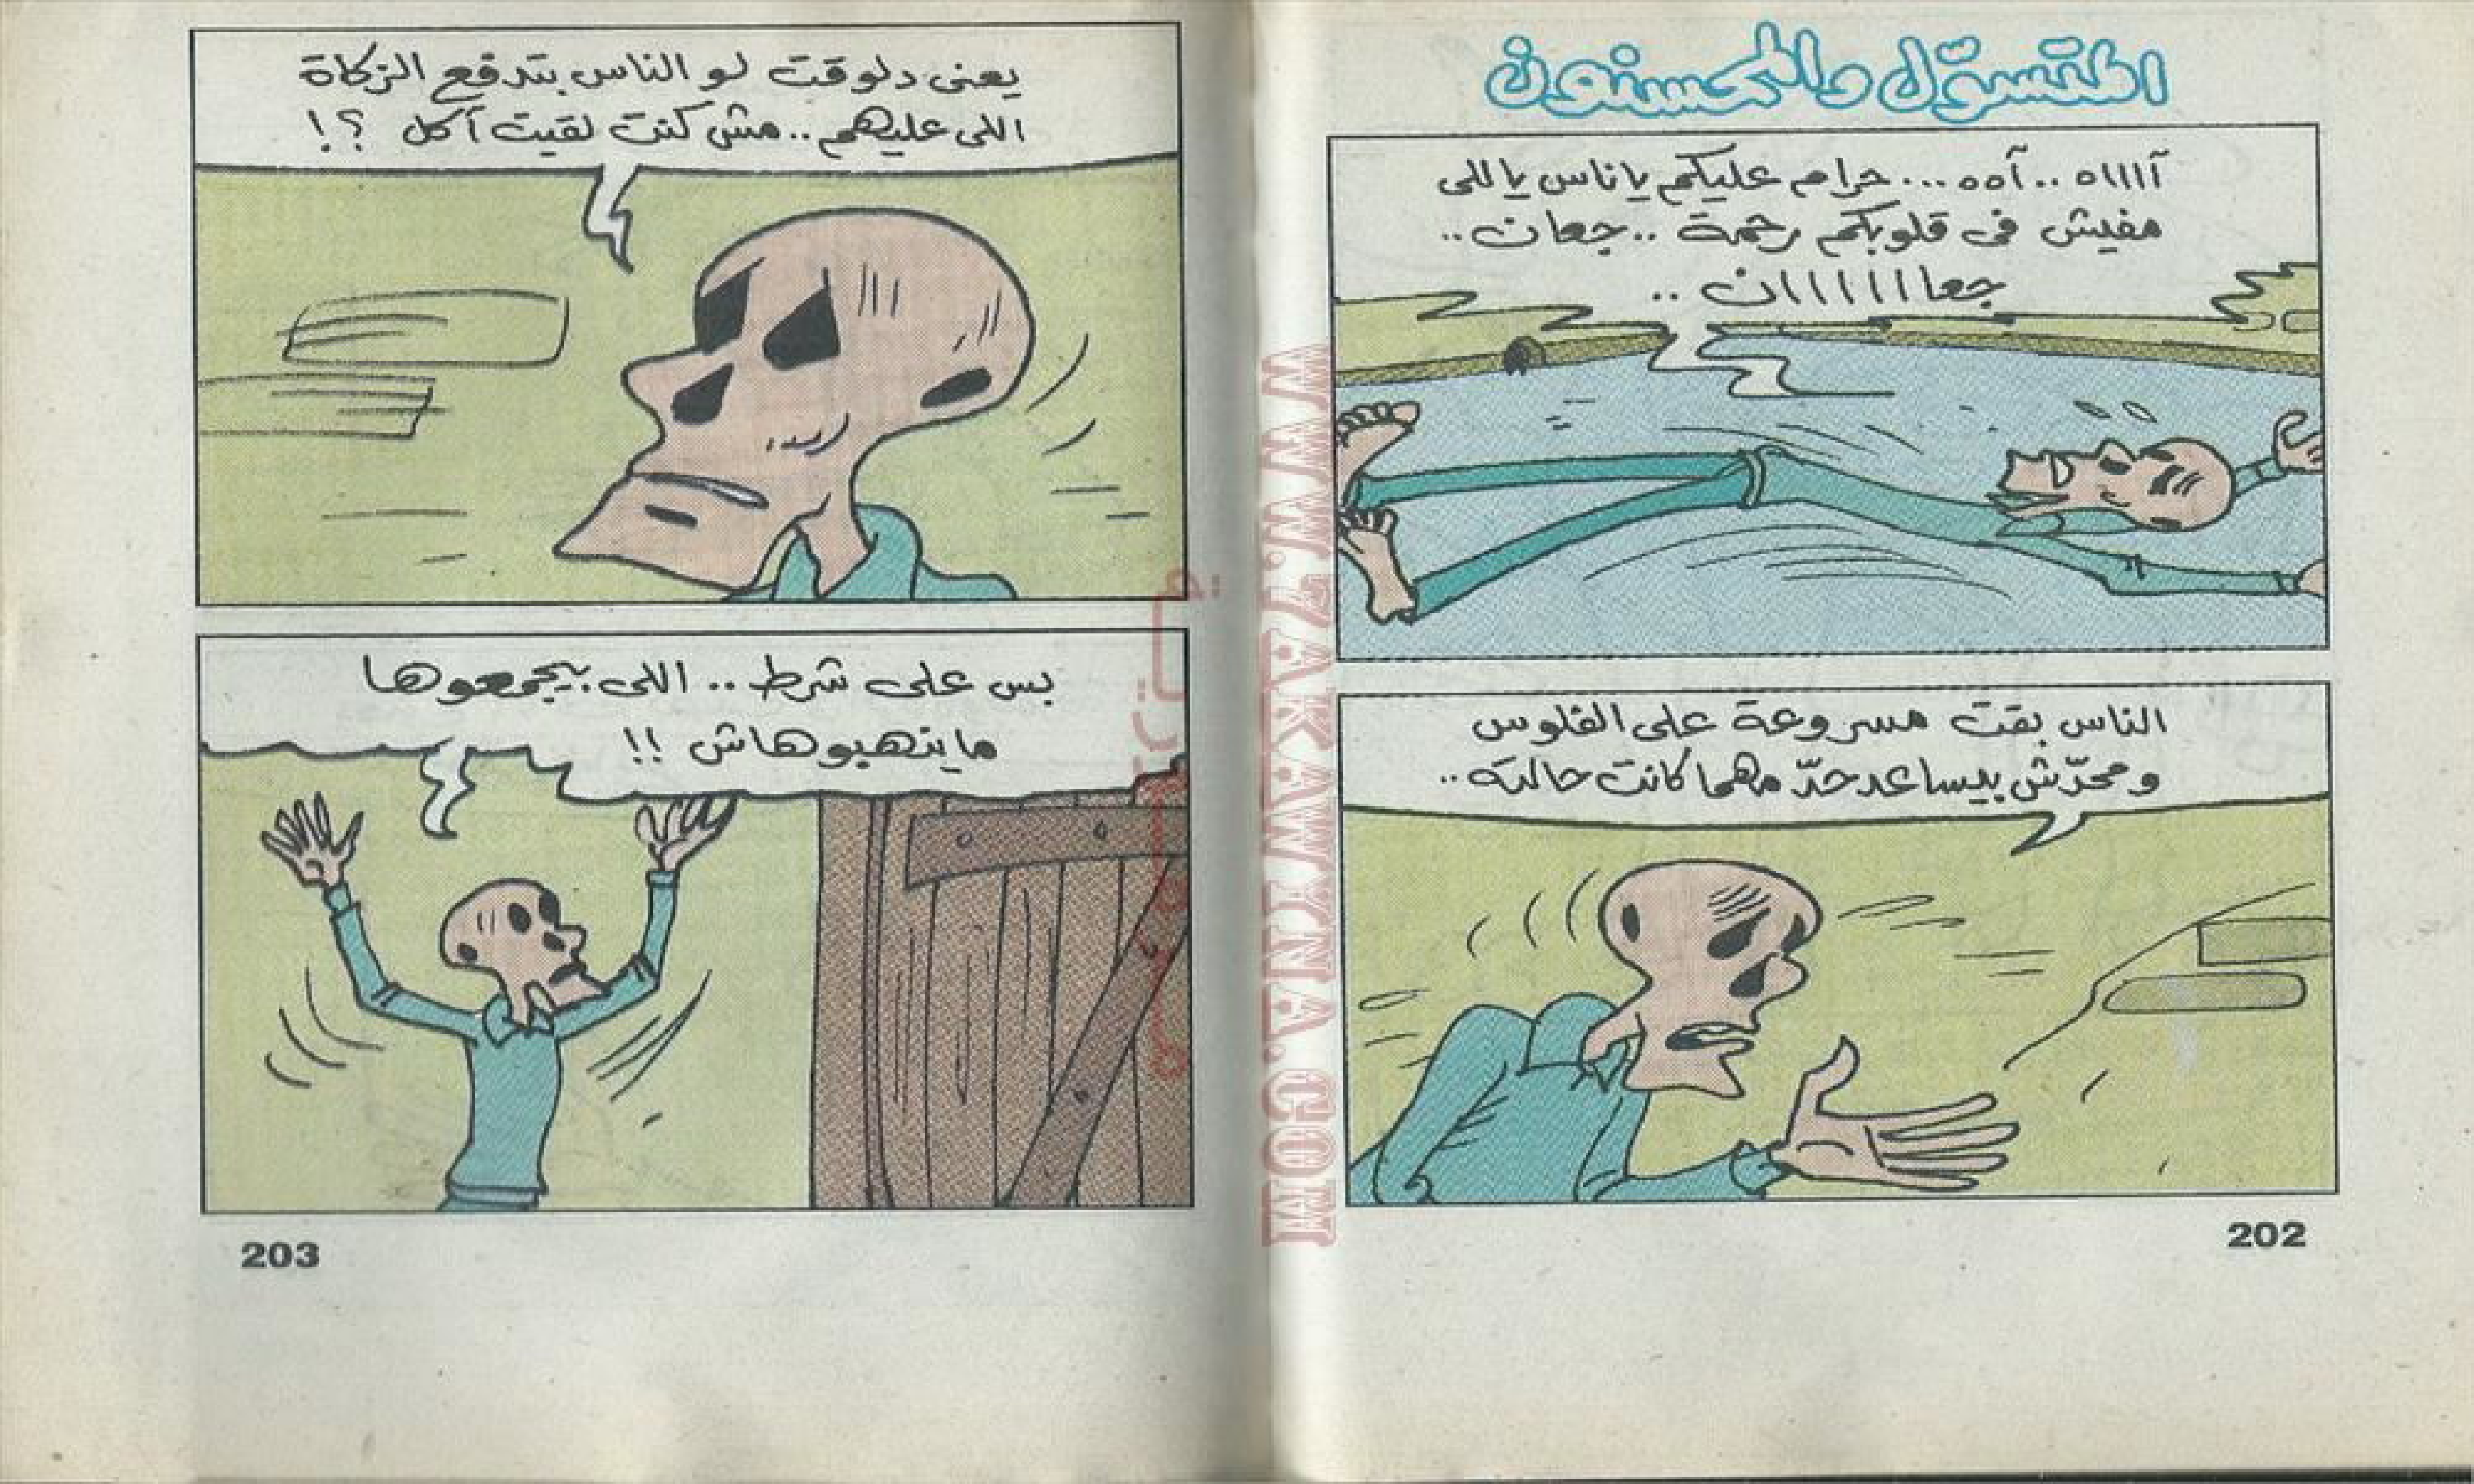 المتسوّل والمحسنون
آاااه .. آهه ... حرام عليكم يا ناس ياللى
مفيش فى قلوبكم رحمة .. جعان ..
جعاااااان ..
الناس بقت مسروعة على الفلوس
ومحدّش بيساعد حدّ مهما كانت حالته ..
202
يعنى دلوقت لو الناس بتدفع الزكاة
اللى عليهم .. مش كنت لقيت آكل ؟!
بس على شرط .. اللى بيجمعوها
ماينهبوهاش !!
203
WWW.7AKAWYNA.COM